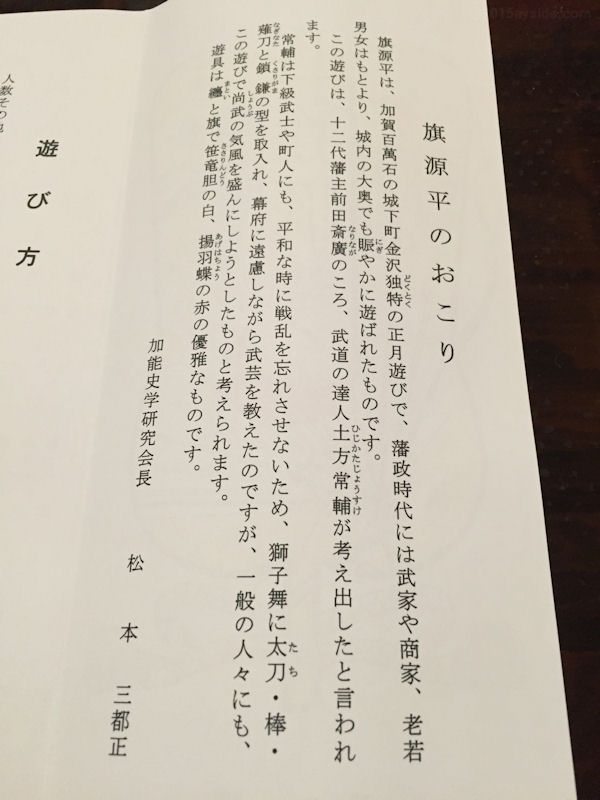 旗源平のおこり
旗源平は、加賀百萬石の城下町金沢独特の正月遊びで、藩政時代には武家や商家、老若
男女はもとより、城内の大奥でも賑やかに遊ばれたものです。
この遊びは、十二代藩主前田斎廣のころ、武道の達人土方常輔が考え出したと言われ
ます。
常輔は下級武士や町人にも、平和な時に戦乱を忘れさせないため、獅子舞に太刀・棒・
薙刀と鎖鎌の型を取入れ、幕府に遠慮しながら武芸を教えたのですが、一般の人々にも、
この遊びで尚武の気風を盛んにしようとしたものと考えられます。
遊具は纏と旗で笹竜胆の白、揚羽蝶の赤の優雅なものです。
加能史学研究会長 松本三都正
遊び方
人数その他